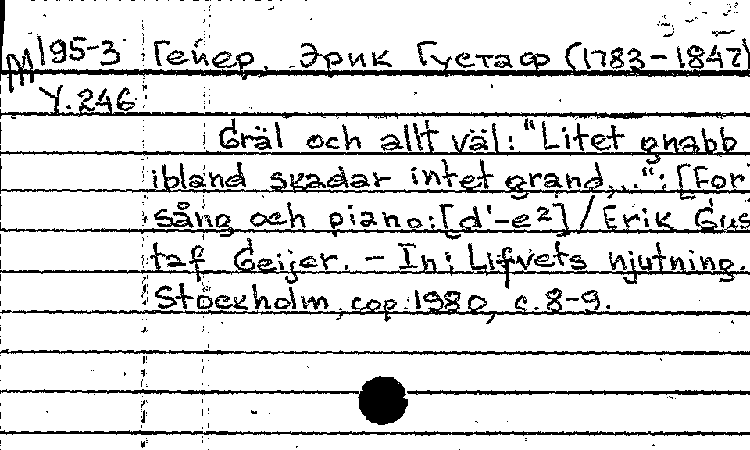 М 195-3 Гейер, Эрик Густаф (1783-1847)
Y.246
Gräl och allt väl: "Litet gnabb
ibland skadar intet grand,..": [För
sång och piano: [d'-e²] / Erik Gus
taf Geijer. - In: Lifvets njutning.
Stockholm, cop. 1980, с. 8-9.